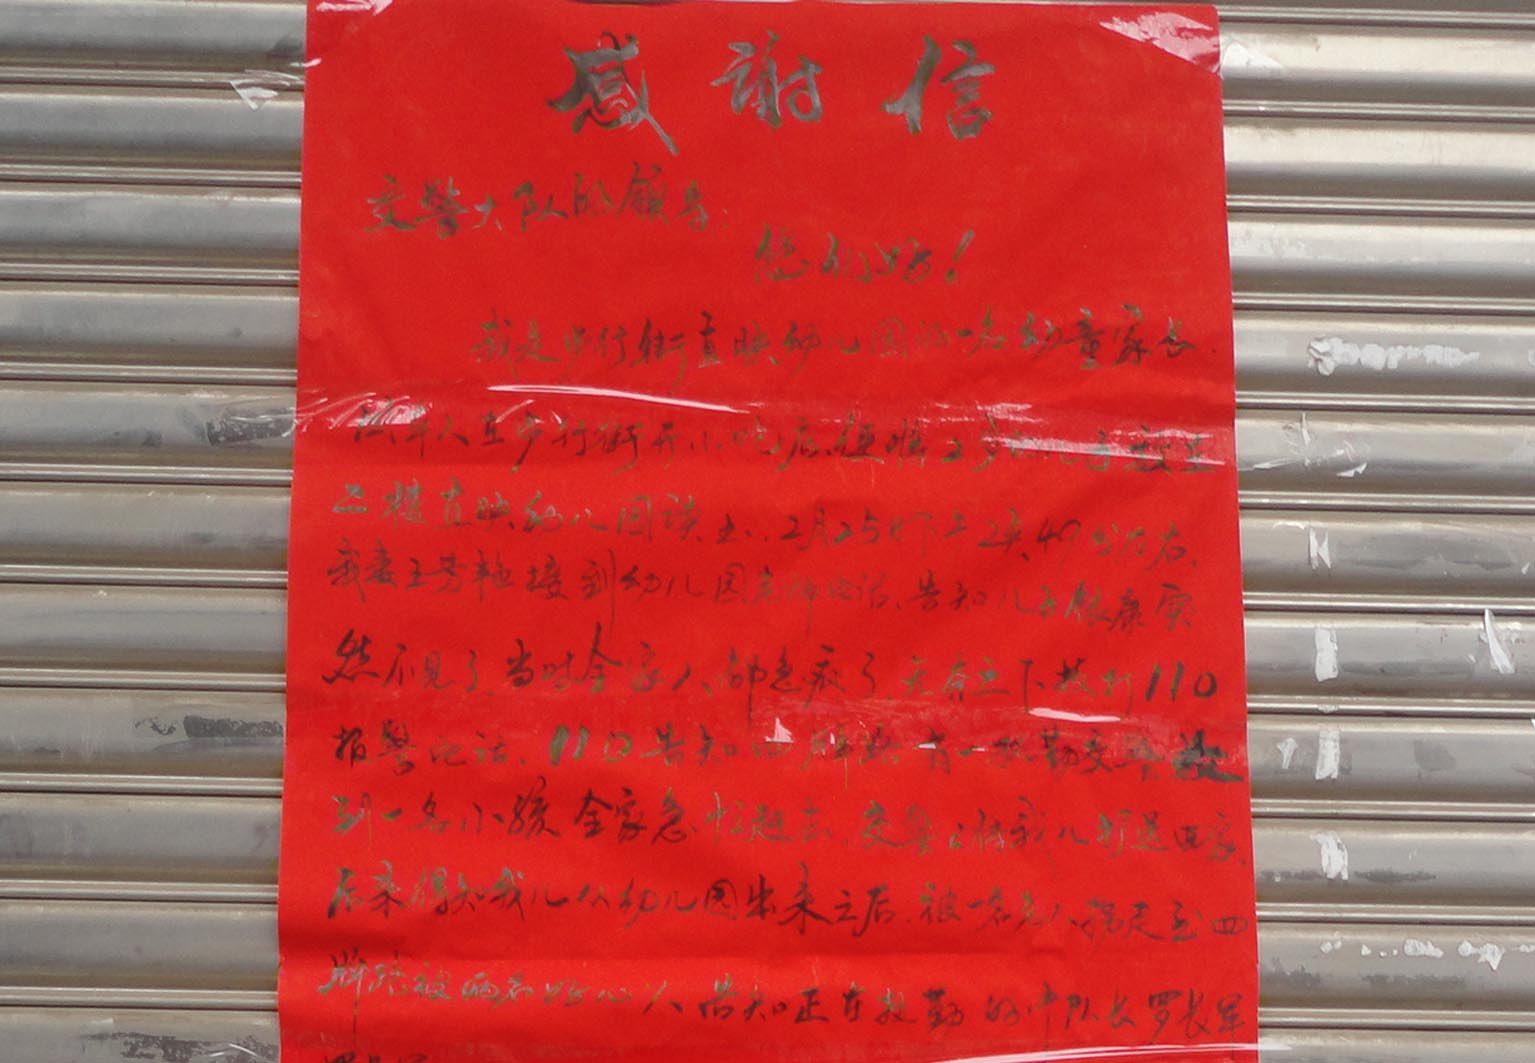 感谢信
交警大队的领导:
您们好!
我是步行街直映幼儿园的一名幼童家长
本人在步行街开小吃店,2岁的儿子就在
二楼直映幼儿园读书,2月25号下午2点49分左右,
我妻王芳艳接到幼儿园老师电话,告知儿子银康突
然不见了当时全家人都急疯了无奈之下拨打110
报警电话,110告知四牌路有一执勤交警
到一名小孩全家急忙赶去,交警已将我儿护送回家,
后来得知我儿从幼儿园出来之后,被一名老人拐走至四
牌路被两名好心人告知正在执勤的中队长罗长军